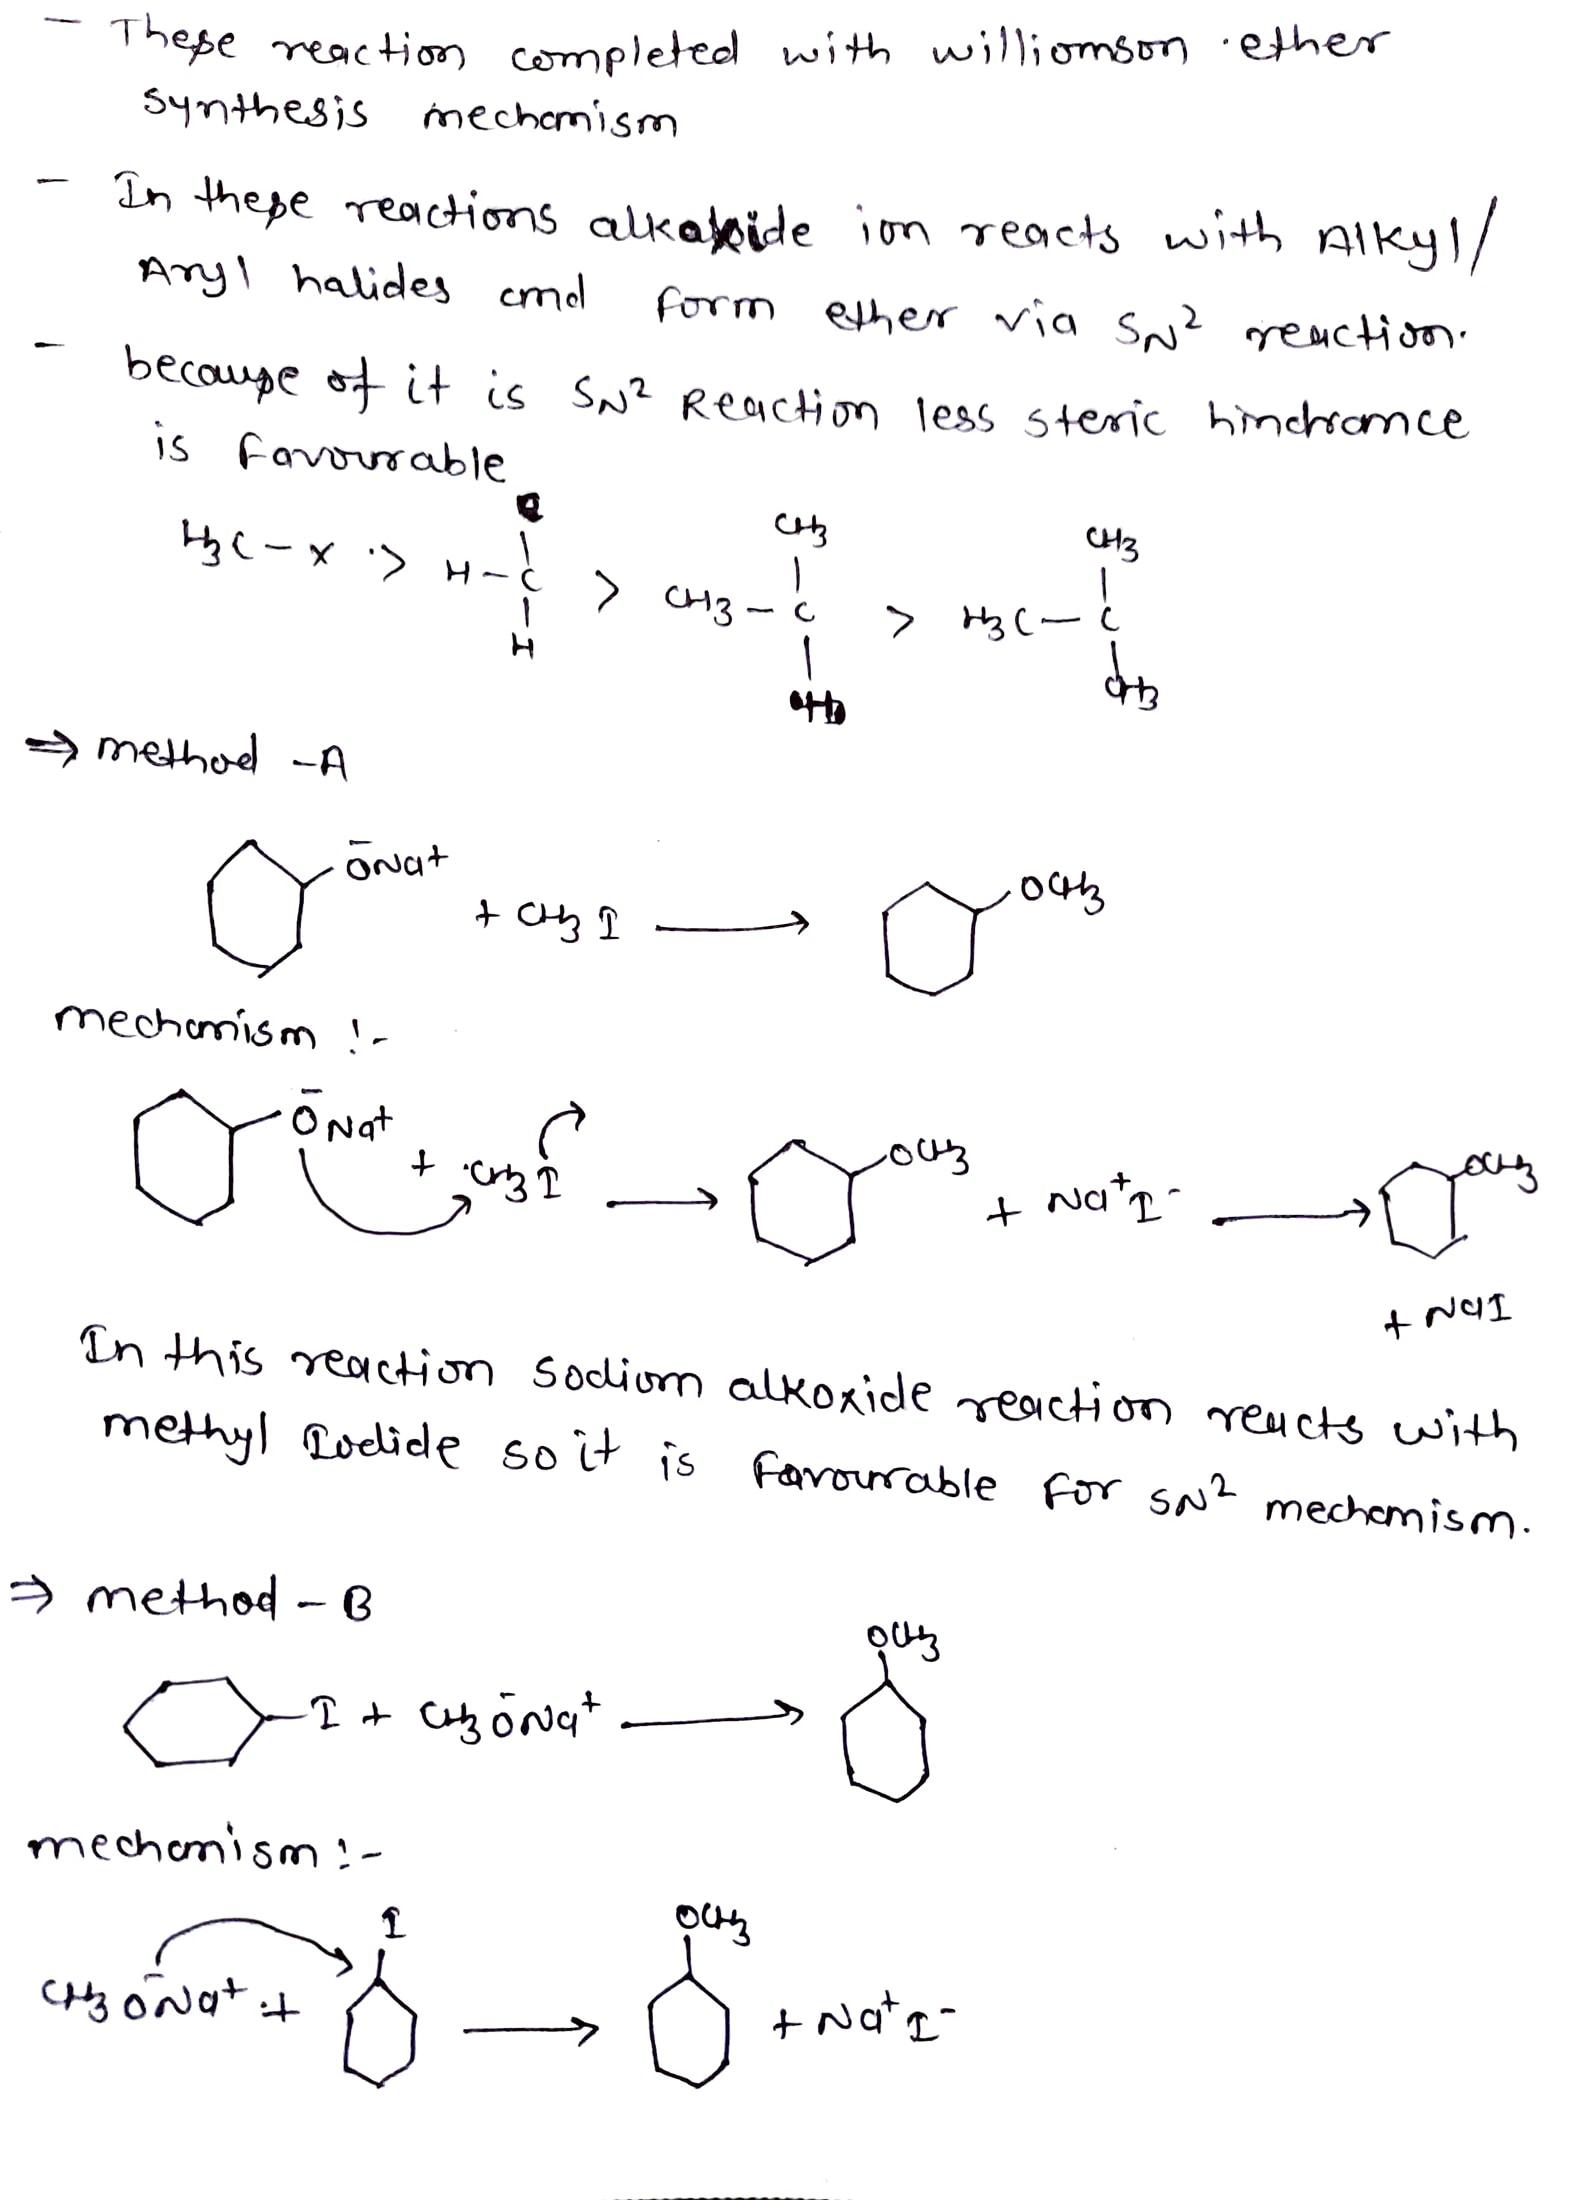 - These reaction completed with williomson ether
synthesis mechanism
- In these reactions alkoxide ion reacts with Alkyl/
Aryl halides and form ether via SN2 reaction.
- because of it is SN2 Reaction less steric hindrance
is favourable
CH3 CH3
H3C - X > H - C > CH3 - C > H3C - C
H CH3
⇒ method - A
ŌNa+ + CH3 I → OCH3
mechanism :-
ŌNa+ + CH3 I → OCH3 + Na+ I- → OCH3
+ NaI
In this reaction sodium alkoxide reaction reacts with
methyl Iodide so it is favourable for SN2 mechanism.
⇒ method - B
I + CH3ŌNa+ → OCH3
mechanism :-
I OCH3
CH3ŌNa+ + → + Na+ I-